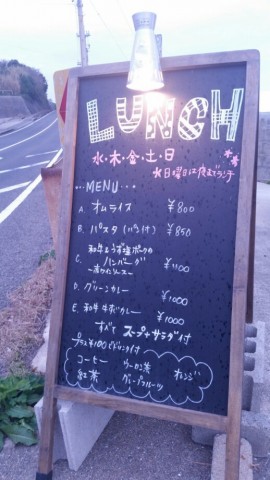 LUNCH
水・木・金・土・日
※日曜日は夜もランチ
・・・MENU・・・
A. オムライス ¥800
B. パスタ(パン付) ¥850
C. 和牛&うず塩ポークの
ハンバーグ
ー赤ワインソースー ¥1100
D. グリーンカレー ¥1000
E. 和牛 牛すじカレー ¥1000
すべて スープ+サラダ付
プラス¥100でドリンク付
コーヒー ウーロン茶 オレンジ
紅茶 グレープフルーツ